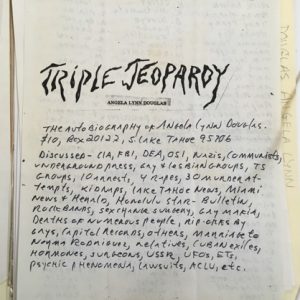 TRIPLE JEOPARDY
ANGELA LYNN DOUGLAS
THE AUTOBIOGRAPHY OF ANGELA LYNN DOUGLAS.
$10, BOX 20122, S LAKE TAHOE 95706
DISCUSSED - CIA, FBI, DEA, OSI, NAZIS, COMMUNISTS,
UNDERGROUND PRESS, GAY & LESBIAN GROUPS, TS
GROUPS, 10 ARRESTS, 4 RAPES, 30 MURDER AT-
TEMPTS, KIDNAPS, LAKE TAHOE NEWS, MIAMI
NEWS & HERALD, HONOLULU STAR-BULLETIN,
ROCK BANDS, SEX CHANGE SURGERY, GAY MAFIA,
DEATHS OF NUMEROUS PEOPLE, RIP-OFFS BY
GAYS, CAPITOL RECORDS, OTHERS, MARRIAGE TO
NORMA RODRIGUES, RELATIVES, CUBAN EXILES,
HORMONES, SURGEONS, USSR, UFOS, ETS,
PSYCHIC PHENOMENA, LAWSUITS, ACLU, ETC.
DOUGLAS, ANGELA LYNN